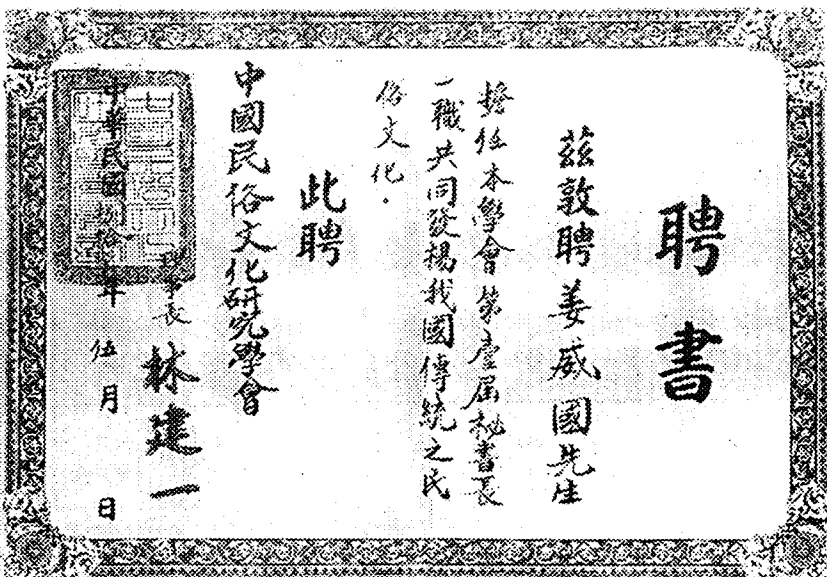 聘書
茲敦聘姜威國先生
擔任本學會第壹屆秘書長
一職共同發揚我國傳統之民
俗文化.
此聘
中國民俗文化研究學會
理事長 林建一
中華民國捌拾年 伍月 日